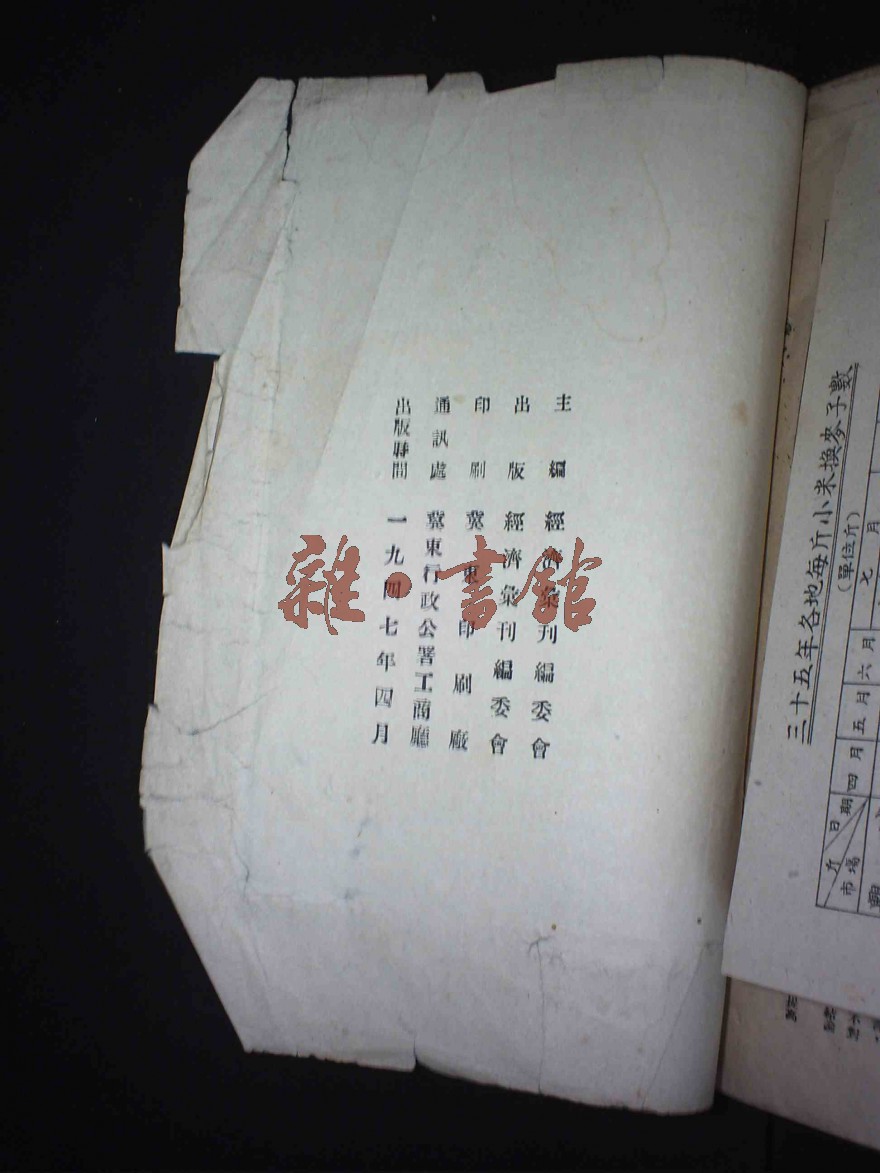 主編 經濟彙刊編委會
出版 經濟彙刊編委會
印刷 冀東印刷廠
通訊處 冀東行政公署工商廳
出版時間 一九四七年四月
雜·書館
三十五年各地每斤小米換麥子數
(單位斤)
市場 斤 日期 四月 五月 六月 七月